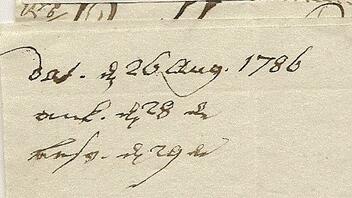 dat. d 26 Aug. 1786
ank. d 28 do
besp. d 29 do